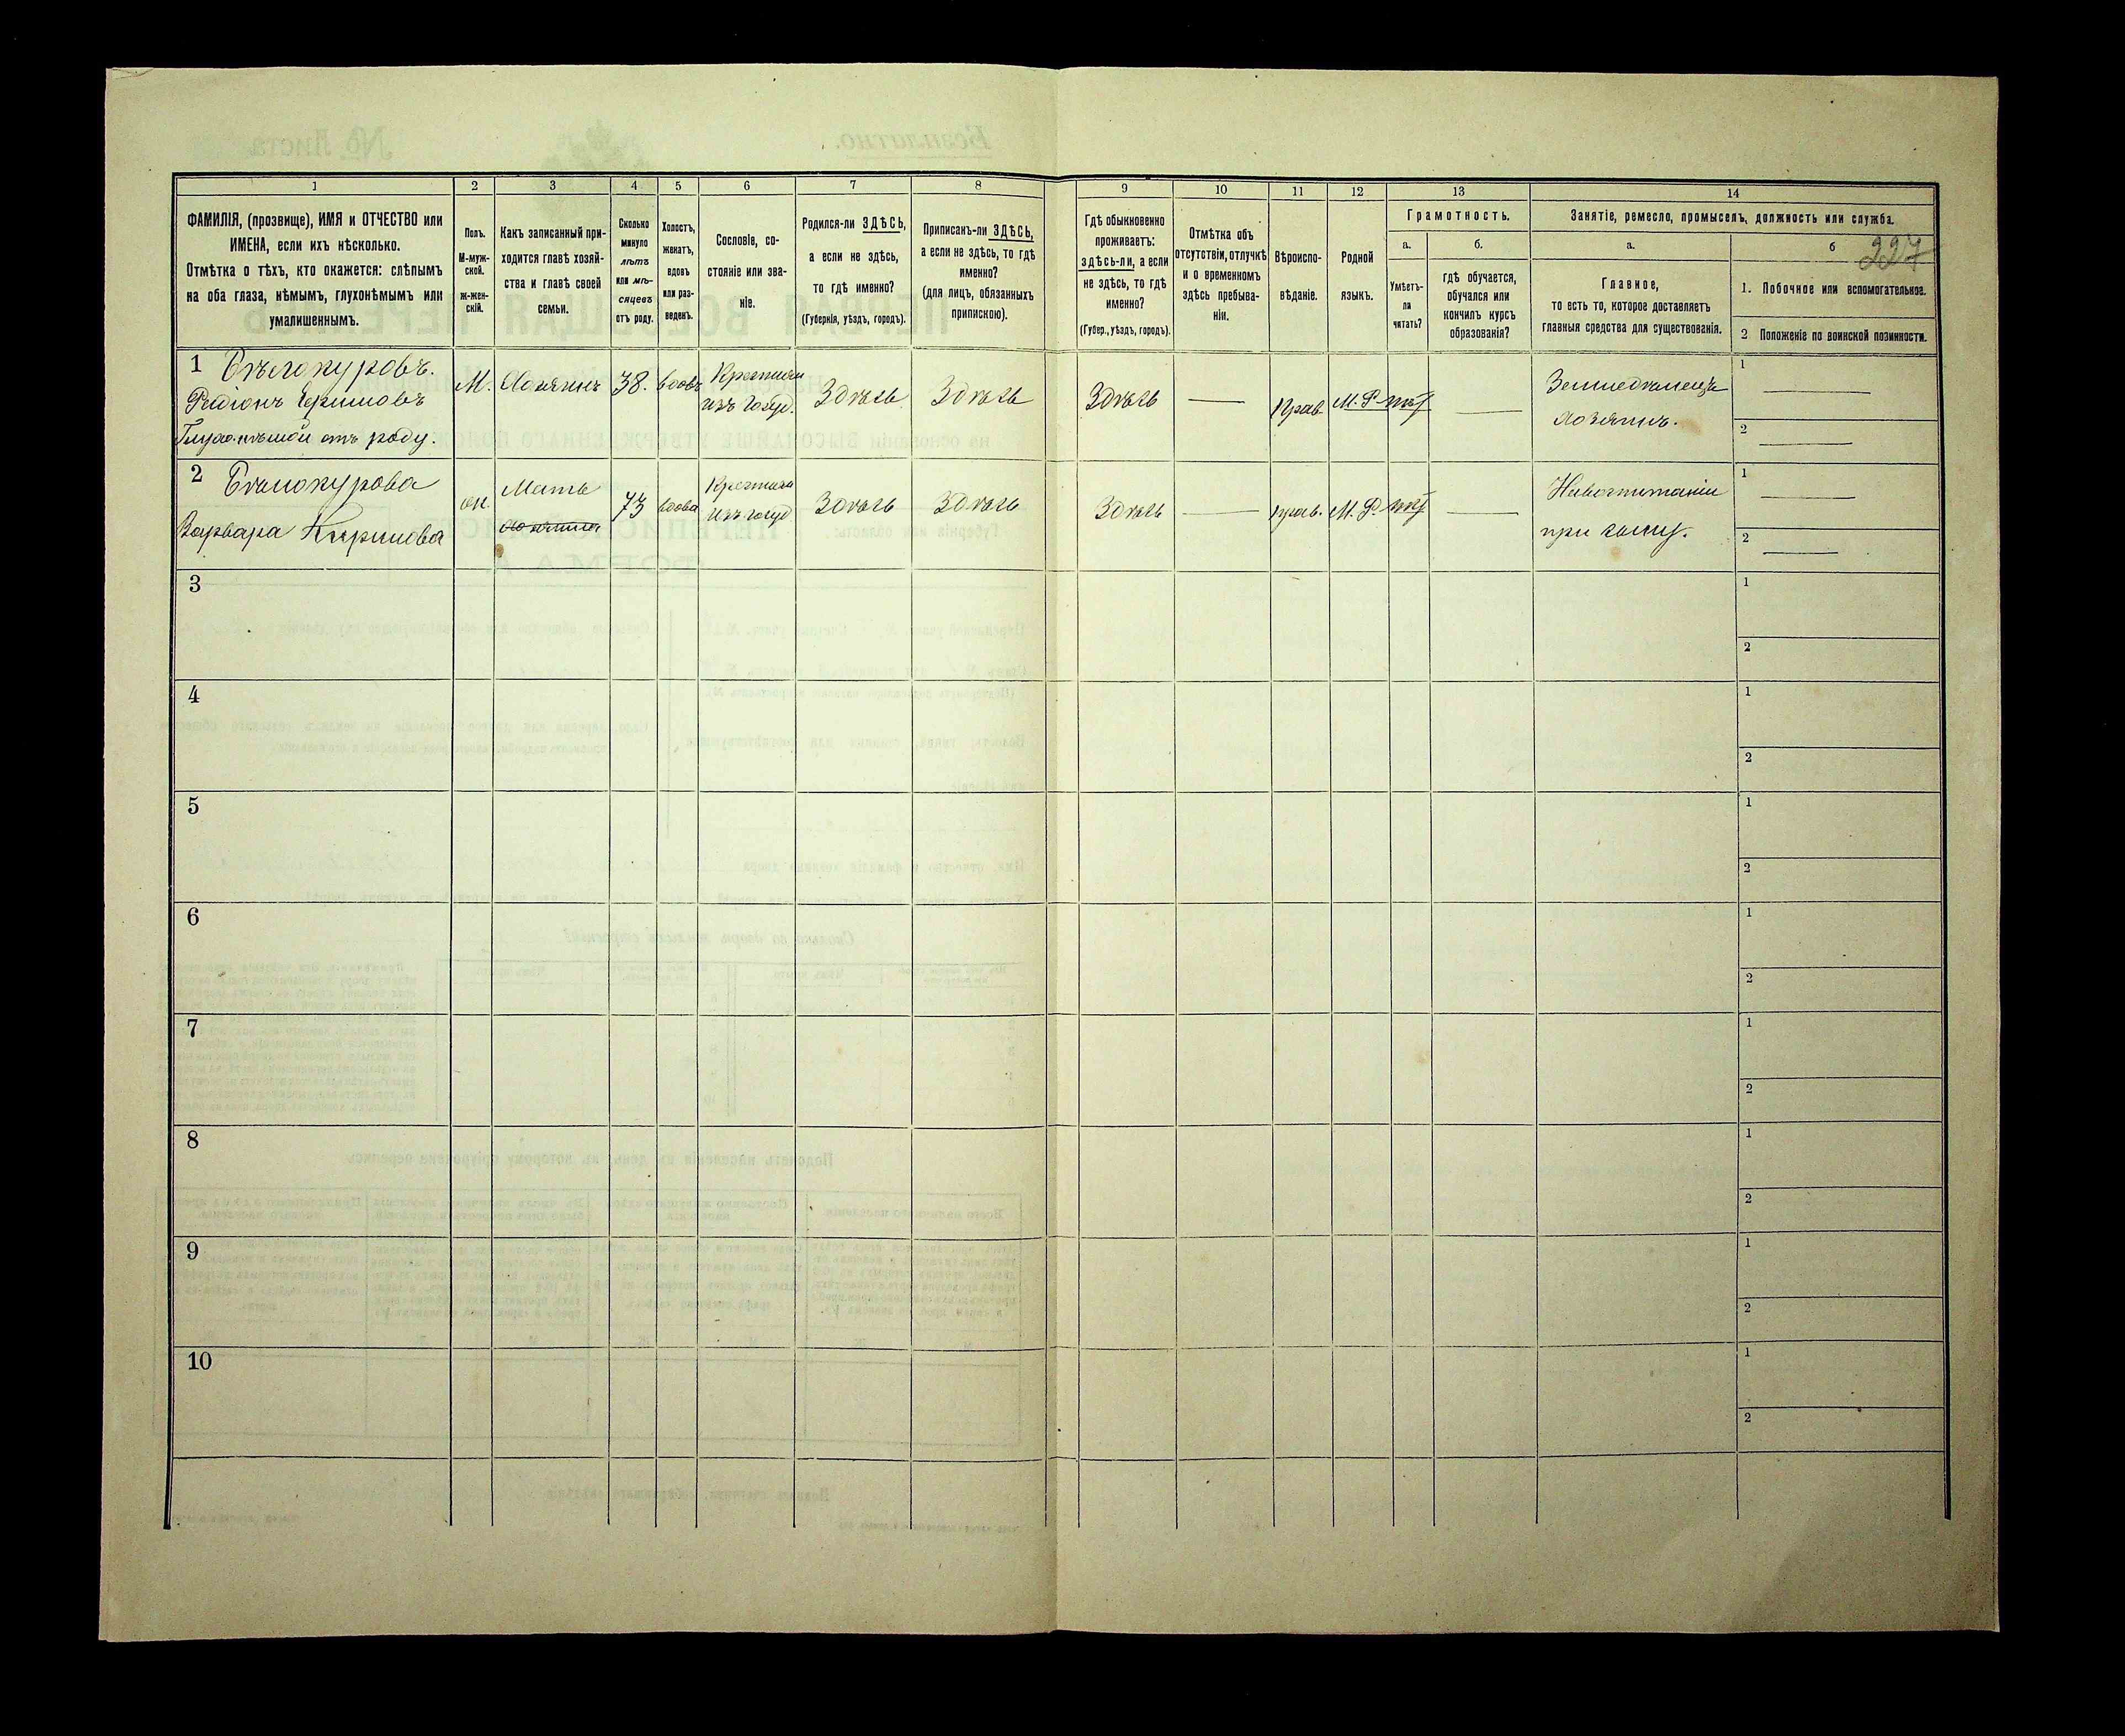 1 2 3 4 5 6 7 8 9 10 11 12 13 14
ФАМИЛІЯ, (прозвище), ИМЯ и ОТЧЕСТВО или
ИМЕНА, если ихъ нѣсколько.
Отмѣтка о тѣхъ, кто окажется: слѣпымъ
на оба глаза, нѣмымъ, глухонѣмымъ или
умалишеннымъ.
Полъ.
М-муж-
ской.
ж-жен-
скій.
Какъ записанный при-
ходится главѣ хозяй-
ства и главѣ своей
семьи.
Сколько
минуло
лѣтъ
или мѣ-
сяцевъ
отъ роду.
Холостъ,
женатъ,
вдовъ
или раз-
веденъ.
Сословіе, со-
стояніе или зва-
ніе.
Родился-ли ЗДѢСЬ,
а если не здѣсь,
то гдѣ именно?
(Губернія, уѣздъ, городъ).
Приписанъ-ли ЗДѢСЬ,
а если не здѣсь, то гдѣ
именно?
(для лицъ, обязанныхъ
припискою).
Гдѣ обыкновенно
проживаетъ:
здѣсь-ли, а если
не здѣсь, то гдѣ
именно?
(Губер., уѣздъ, городъ).
Отмѣтка объ
отсутствіи, отлучкѣ
и о временномъ
здѣсь пребыва-
ніи.
Вѣроиспо-
вѣданіе.
Родной
языкъ.
Грамотность.
а.
Умѣетъ-
ли
читать?
б.
гдѣ обучается,
обучался или
кончилъ курсъ
образованія?
Занятіе, ремесло, промыселъ, должность или служба.
а.
Главное,
то есть то, которое доставляетъ
главныя средства для существованія.
б
227
1. Побочное или вспомогательное.
2 Положеніе по воинской повинности.
1 Бѣлокуровъ.
Родіонъ Ефимовъ
Глухо-нѣмой отъ роду.
М.
Хозяинъ
38.
вдовъ
Крестьян
изъ госуд.
Здѣсь
Здѣсь
Здѣсь
прав.
М. Р.
нѣт
Земледѣлецъ
хозяинъ.
1
2
2 Бѣлокурова
Варвара
ж.
Мать
хозяина
73
вдова
Крестьян
изъ госуд
Здѣсь
Здѣсь
Здѣсь
прав.
М. Р.
нѣт
При сынѣ.
1
2
3
1
2
4
1
2
5
1
2
6
1
2
7
1
2
8
1
2
9
1
2
10
1
2